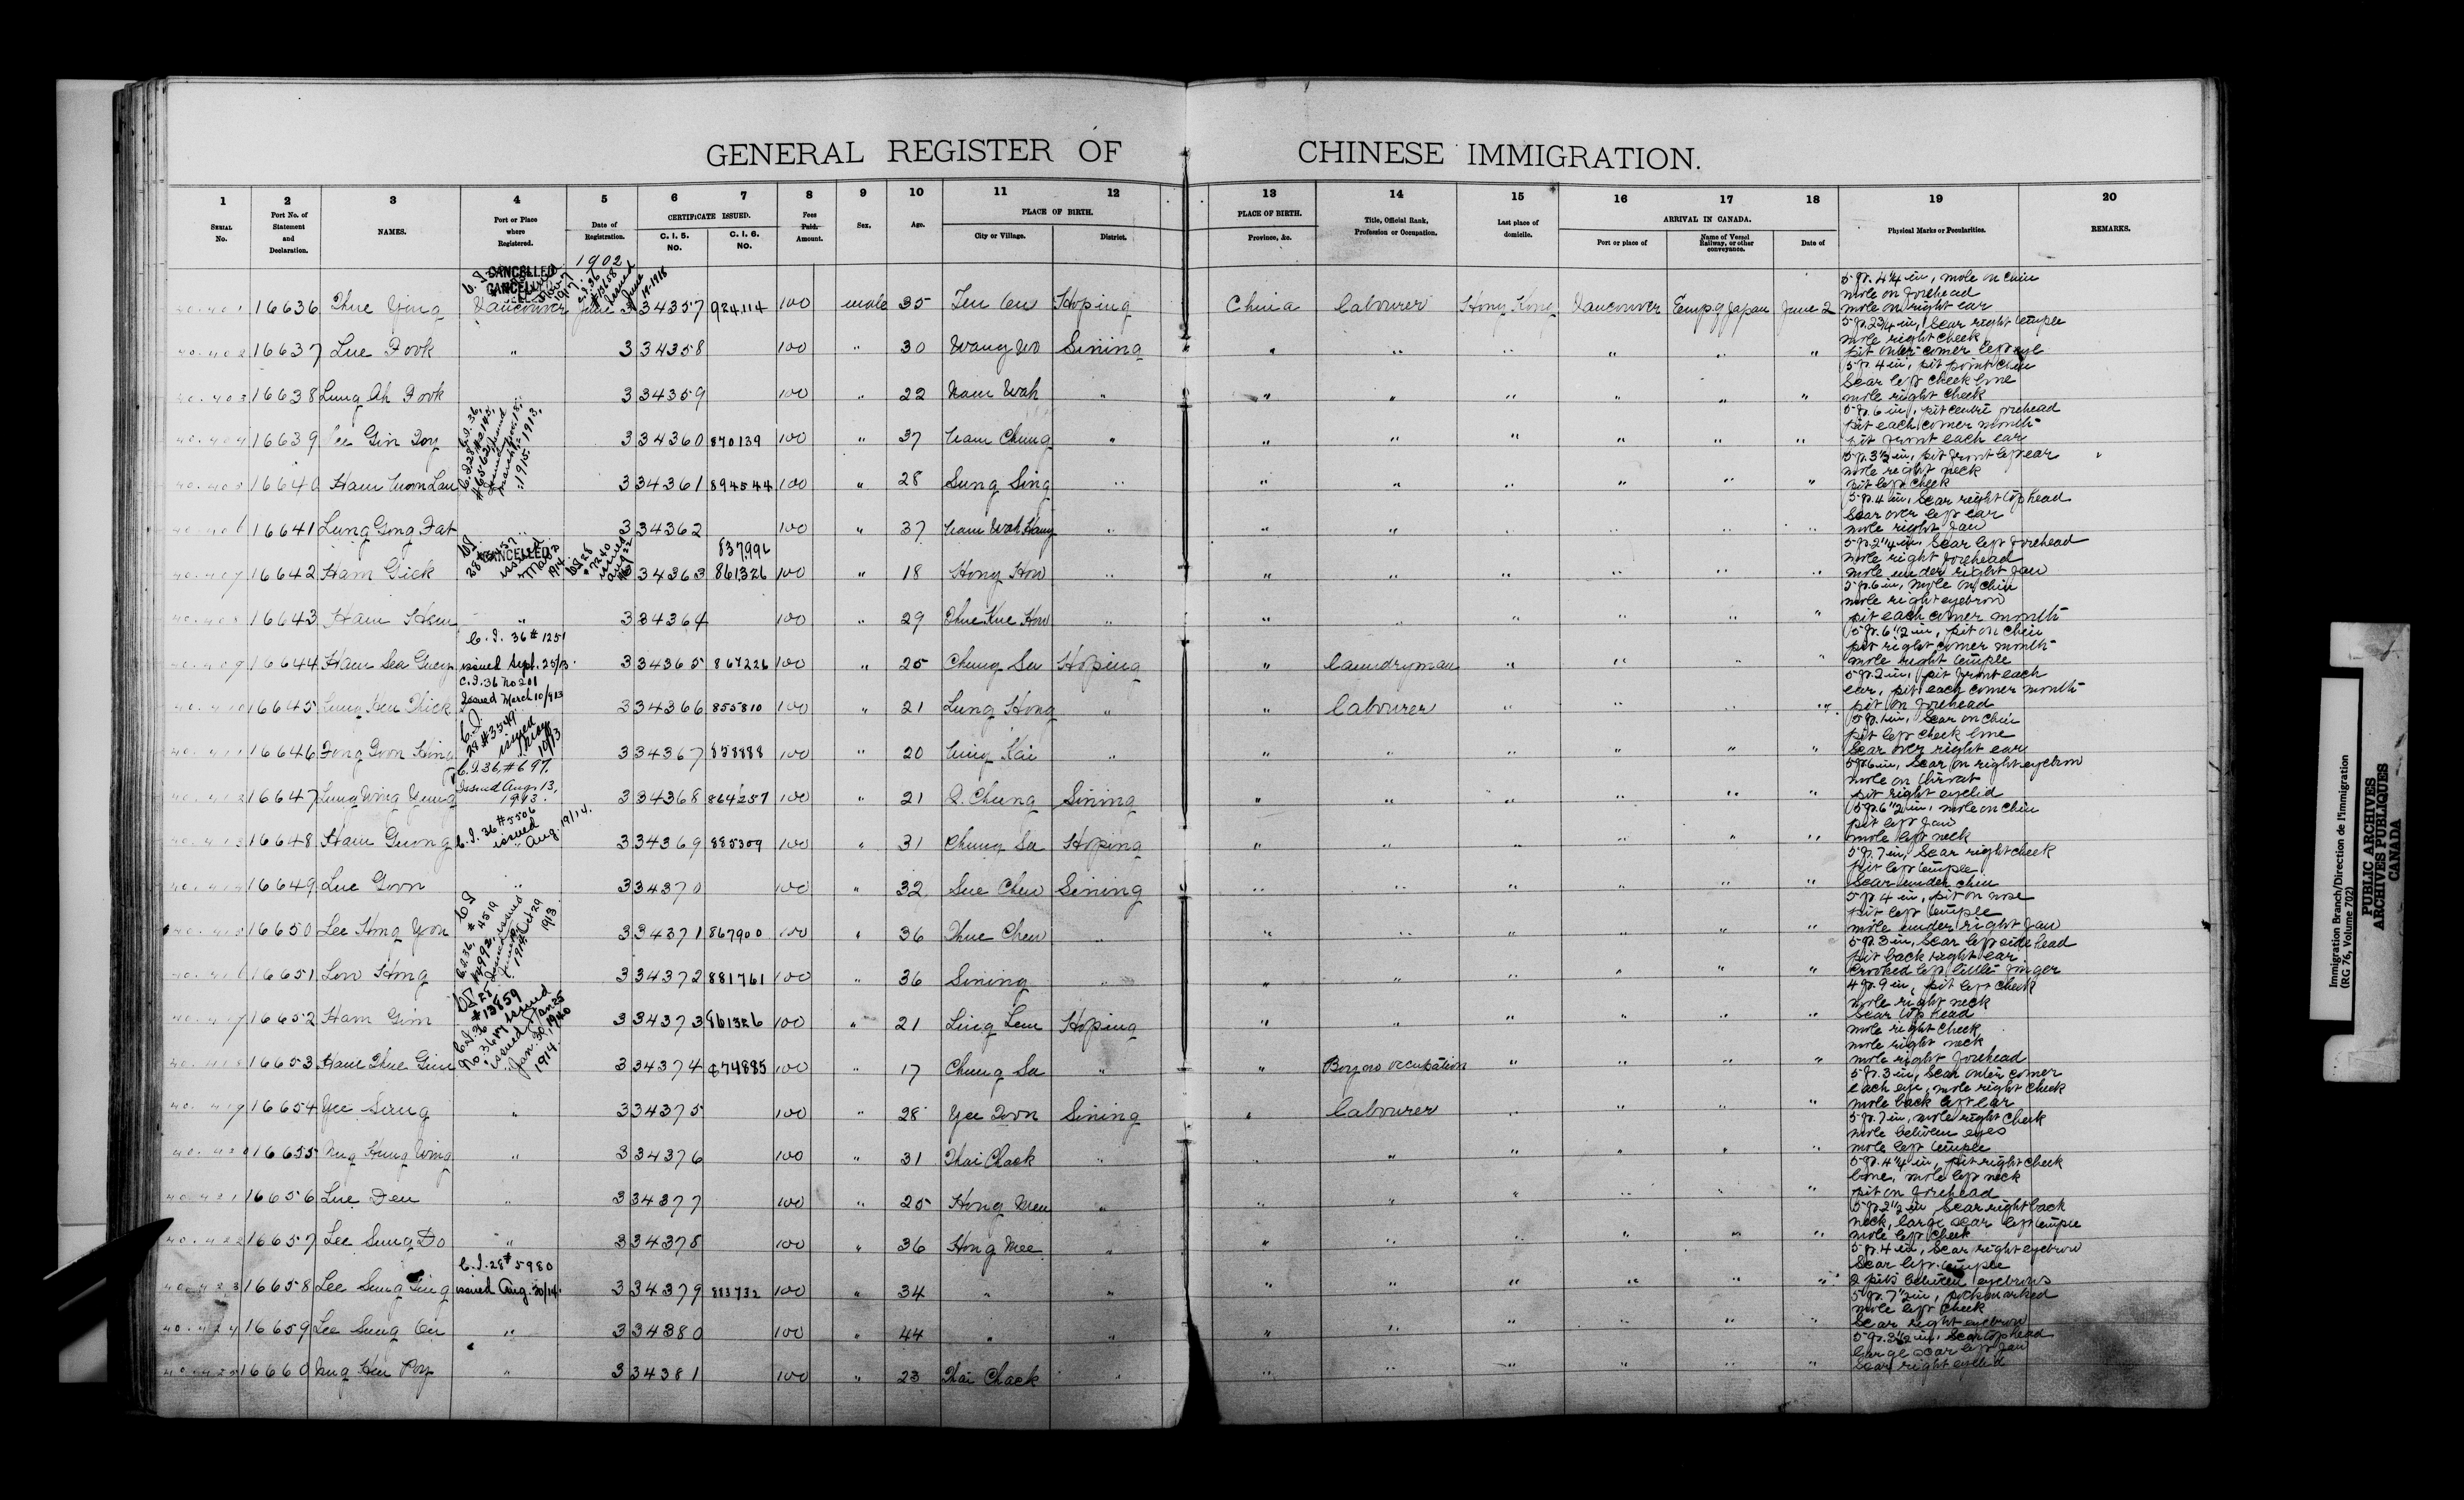 GENERAL REGISTER OF CHINESE IMMIGRATION.
1 2 3 4 5 6 7 8 9 10 11 12 13 14 15 16 17 18 19 20
SERIAL No. Port No. of Statement and Declaration. NAMES. Port or Place where Registered. Date of Registration. CERTIFICATE ISSUED. C. I. 5. NO. C. I. 6. NO. Fees Paid. Amount. Sex. Age. PLACE OF BIRTH. City or Village. District. PLACE OF BIRTH. Province, &c. Title, Official Rank, Profession or Occupation. Last place of domicile. ARRIVAL IN CANADA. Port or place of Name of Vessel Railway, or other conveyance. Date of Physical Marks or Peculiarities. REMARKS.
1902
CANCELLED
CANCELLED
40.401 16636 Vancouver June 3 34357 924114 100 male 35 Hoping China Labourer Hong Kong Vancouver Emp. of Japan June 2 5 ft. 4 1/4 in, mole on chin
mole on forehead
mole on right ear
40.402 16637 Lue Fook " 3 34358 100 " 30 Wang Wo Sining " " " " " " 5 ft. 2 3/4 in, Scar right temple
mole right cheek
pit outer corner left eye
40.403 16638 Lung Ah Fook 3 34359 100 " 22 Nam Wah " " " " " " " 5 ft. 4 in, pit point chin
Scar left cheek bone
mole right cheek
40.404 16639 Lee Gin Doy 3 34360 870139 100 " 37 Nam Chung " " " " " " " 5 ft. 6 in, pit centre forehead
pit each corner mouth
pit front each ear
40.405 16640 3 34361 894544 100 " 28 Sung Sing " " " " " " " 5 ft. 3 1/2 in, pit front left ear
mole right neck
pit left cheek
40.406 16641 Lung Gong Fat " 3 34362 100 " 37 Nam Wah Hang " " " " " " " 5 ft. 4 in, Scar right top head
Scar over left ear
mole right Jaw
CANCELLED
837996
40.407 16642 Ham Gick 34363 861326 100 " 18 Hong How " " " " " " " 5 ft. 2 1/4 in, Scar left forehead
mole right forehead
mole under right Jaw
40.408 16643 Ham Hem " 3 34364 100 " 29 " " " " " " " 5 ft. 6 in, mole on chin
mole right eyebrow
pit each corner mouth
C.I. 36 # 1251
issued Sept. 25/13.
40.409 16644 3 34365 867226 100 " 25 Chung Sa Hoping " Laundryman " " " " 5 ft. 6 1/2 in, pit on chin
pit right corner mouth
mole right temple
C.I. 36 No 201
Issued March 10/913
40.410 16645 3 34366 855810 100 " 21 Lung Hong " " Labourer " " " " 5 ft. 2 in, pit front each
ear, pit each corner mouth
pit on forehead
40.411 16646 3 34367 858888 100 " 20 " " " " " " " 5 ft. 1 in, Scar on chin
pit left cheek bone
Scar over right ear
C.I. 36, # 697.
Issued Aug. 13,
1913.
40.412 16647 3 34368 864257 100 " 21 Sining " " " " " " 5 ft. 6 in, Scar on right eyebrow
mole on throat
pit right eyelid
C.I. 36 # 5506
issued
Aug. 19/14.
40.413 16648 Ham Guong 3 34369 885309 100 " 31 Chung Sa Hoping " " " " " " 5 ft. 6 1/2 in, mole on chin
pit left Jaw
mole left neck
40.414 16649 Lue Goon " 3 34370 100 " 32 Sue Chew Sining " " " " " " 5 ft. 7 in, Scar right cheek
pit left temple
Scar under chin
40.415 16650 Lee Hong Yoon 3 34371 867900 100 " 36 " " " " " " " 5 ft. 4 in, pit on nose
pit left temple
mole under right Jaw
40.416 16651 Low Hong 3 34372 881761 100 " 36 Sining " " " " " " " 5 ft. 3 in, Scar left side head
pit back right ear
Crooked left little finger
40.417 16652 Ham Gim 3 34373 861326 100 " 21 Ling Lem Hoping " " " " " " 4 ft. 9 in, pit left cheek
mole right neck
Scar top head
40.418 16653 3 34374 874885 100 " 17 Chung Sa " " Boy no occupation " " " " mole right cheek
mole right neck
mole right forehead
40.419 16654 Yee Sang " 3 34375 100 " 28 Yee Doon Sining " Labourer " " " " 5 ft. 3 in, Scar outer corner
each eye, mole right cheek
mole back left ear
40.420 16655 Ung Hung Wing " 3 34376 100 " 31 Thai Chack " " " " " " " 5 ft. 7 in, mole right cheek
mole between eyes
mole left temple
40.421 16656 Lue Deu " 3 34377 100 " 25 " " " " " " " 5 ft. 4 1/4 in, pit right cheek
bone, mole left neck
pit on forehead
40.422 16657 Lee Sung Do " 3 34378 100 " 36 Hong Mee " " " " " " " 5 ft. 2 1/2 in, Scar right back
neck, large scar left temple
mole left cheek
C.I. 28 # 5980
issued Aug. 30/14.
40.423 16658 Lee Sung 3 34379 883732 100 " 34 " " " " " " " " 5 ft. 4 in, Scar right eyebrow
Scar left temple
2 pits between eyebrows
40.424 16659 Lee Sung On " 3 34380 100 " 44 " " " " " " " " 5 ft. 7 1/2 in, pockmarked
mole left cheek
Scar right eyebrow
40.425 16660 Ung Hen Poy " 3 34381 100 " 23 Thai Chack " " " " " " " 5 ft. 3 1/2 in, Scar top head
large scar left Jaw
Scar right eyelid
Immigration Branch/Direction de l'immigration
(RG 76, Volume 702)
PUBLIC ARCHIVES
ARCHIVES PUBLIQUES
CANADA